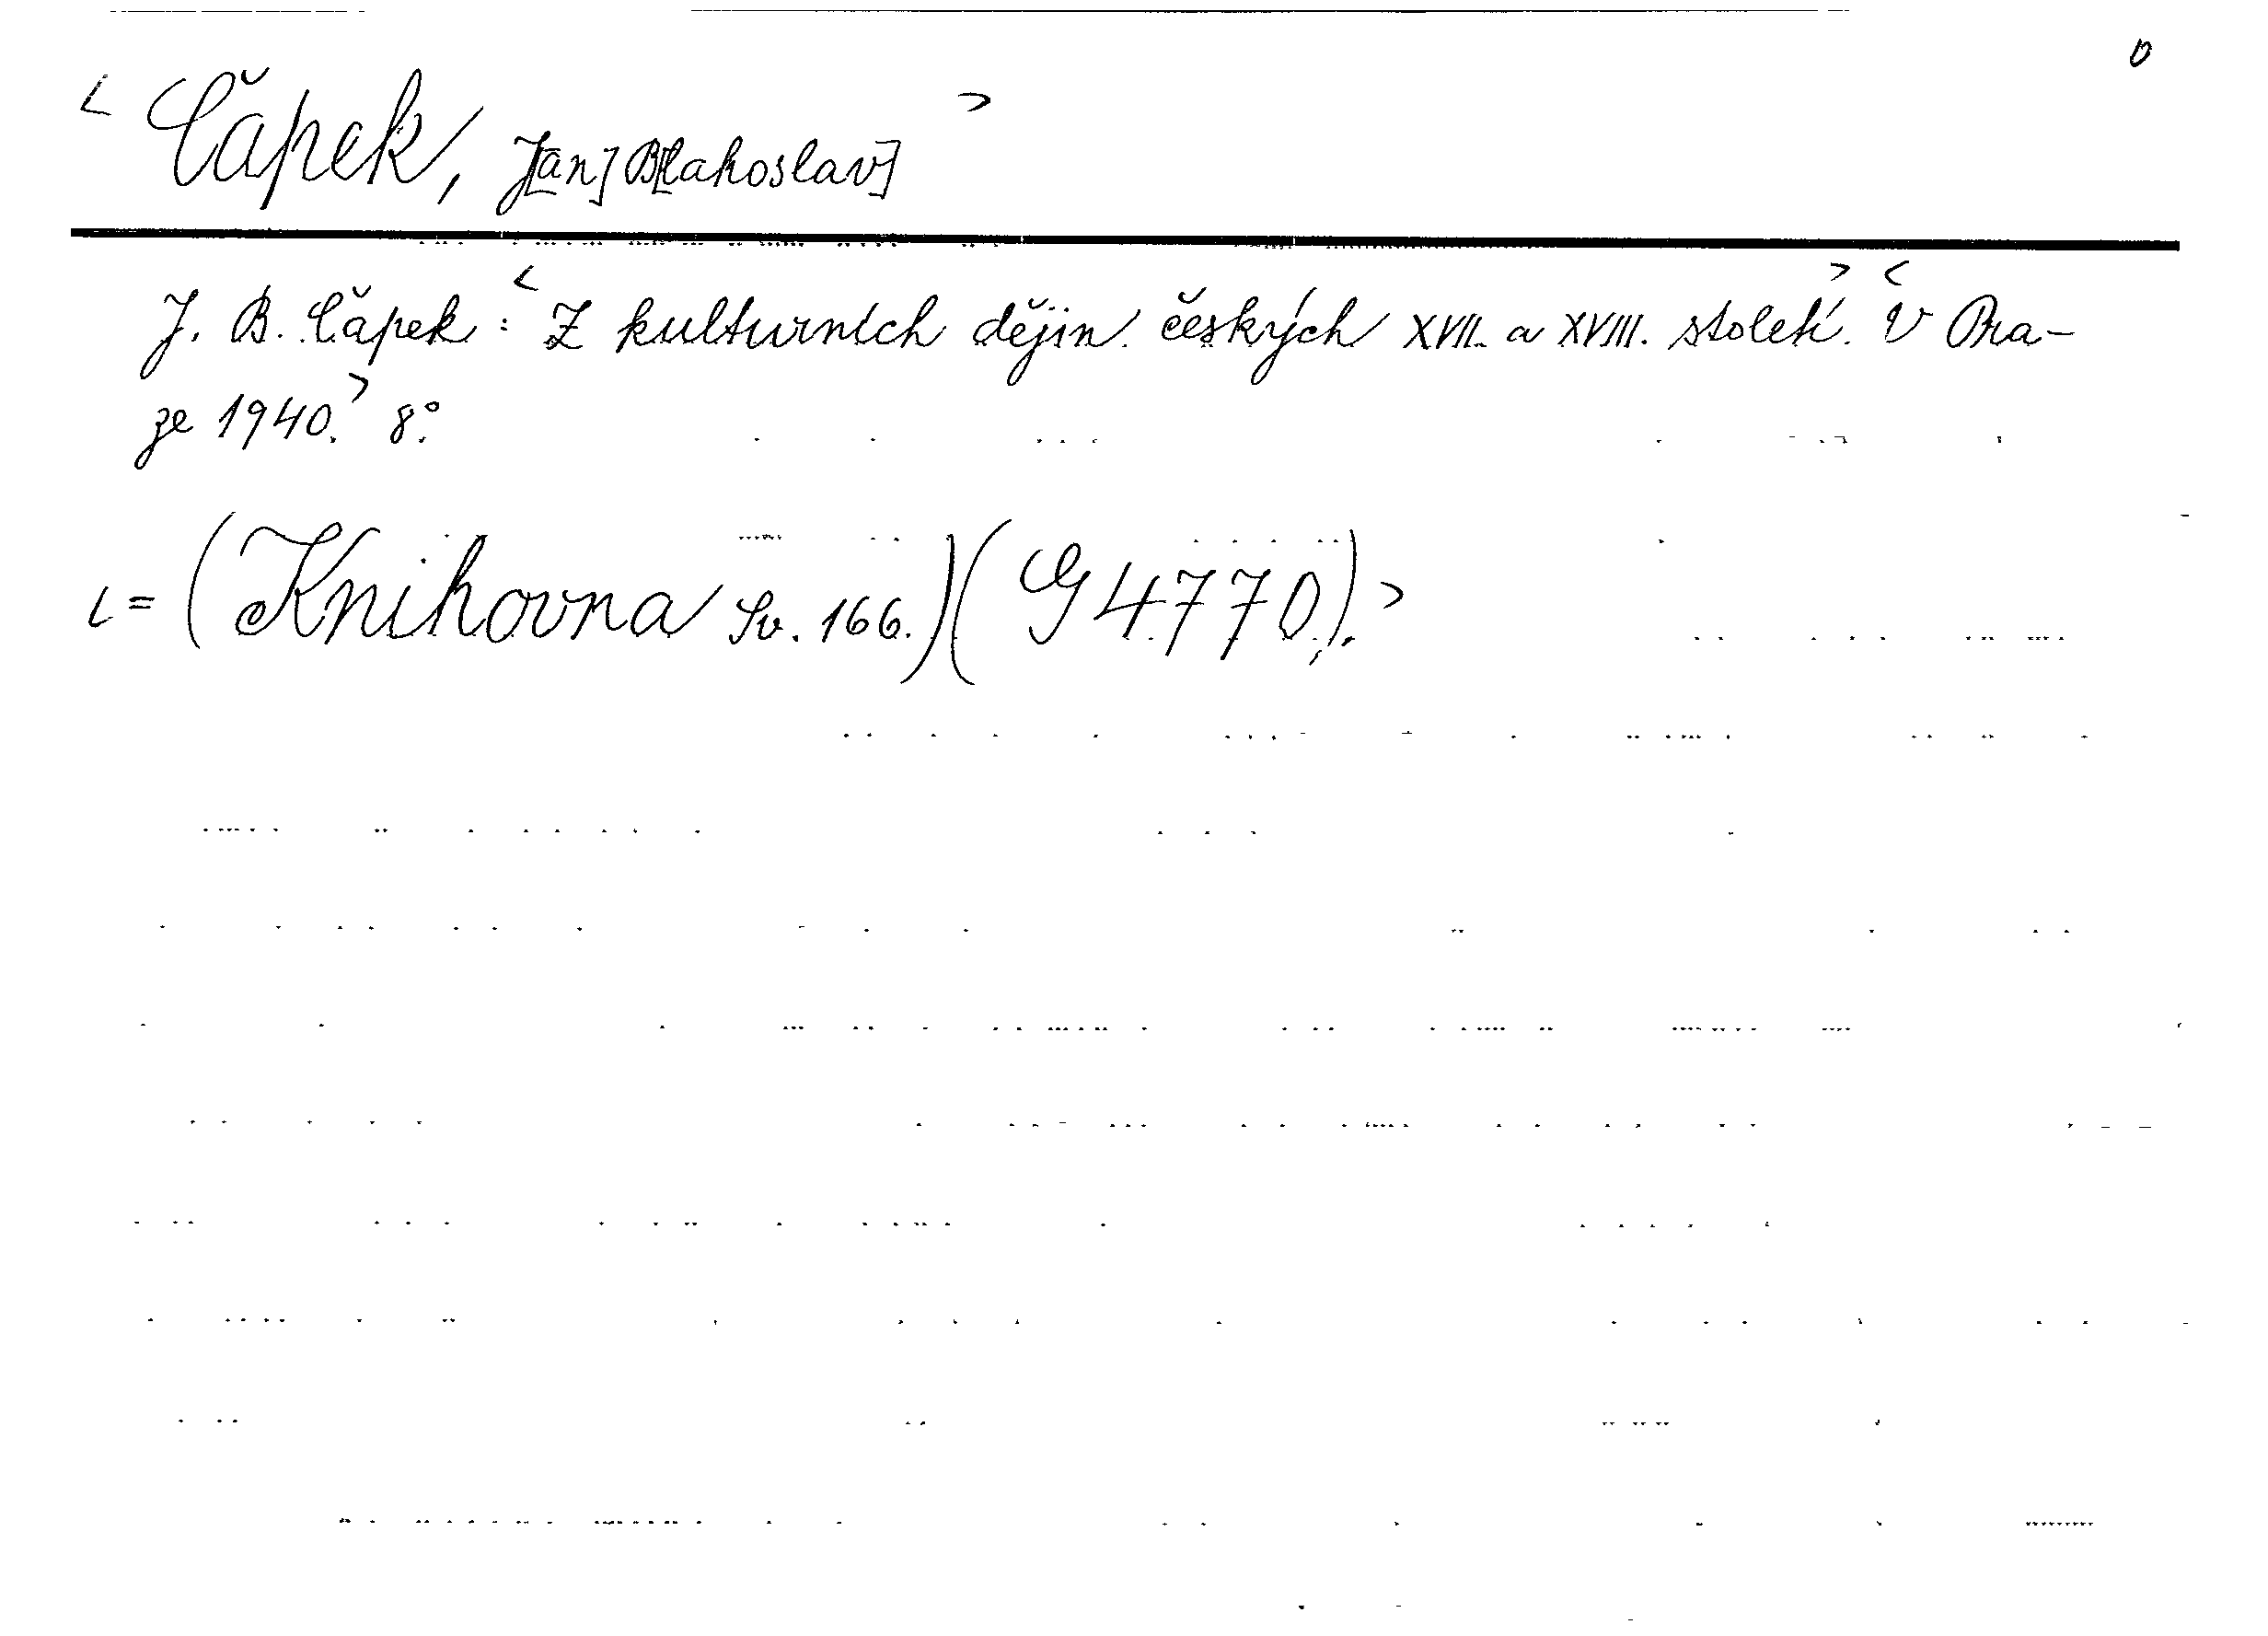 0
< Čapek, J[an] B[lahoslav] >
J. B. Čapek: < Z kulturních dějin českých XVII. a XVIII. století. > < V Pra-
ze 1940. > 8°.
< = (Knihovna Sv. 166.) (G 4770). >